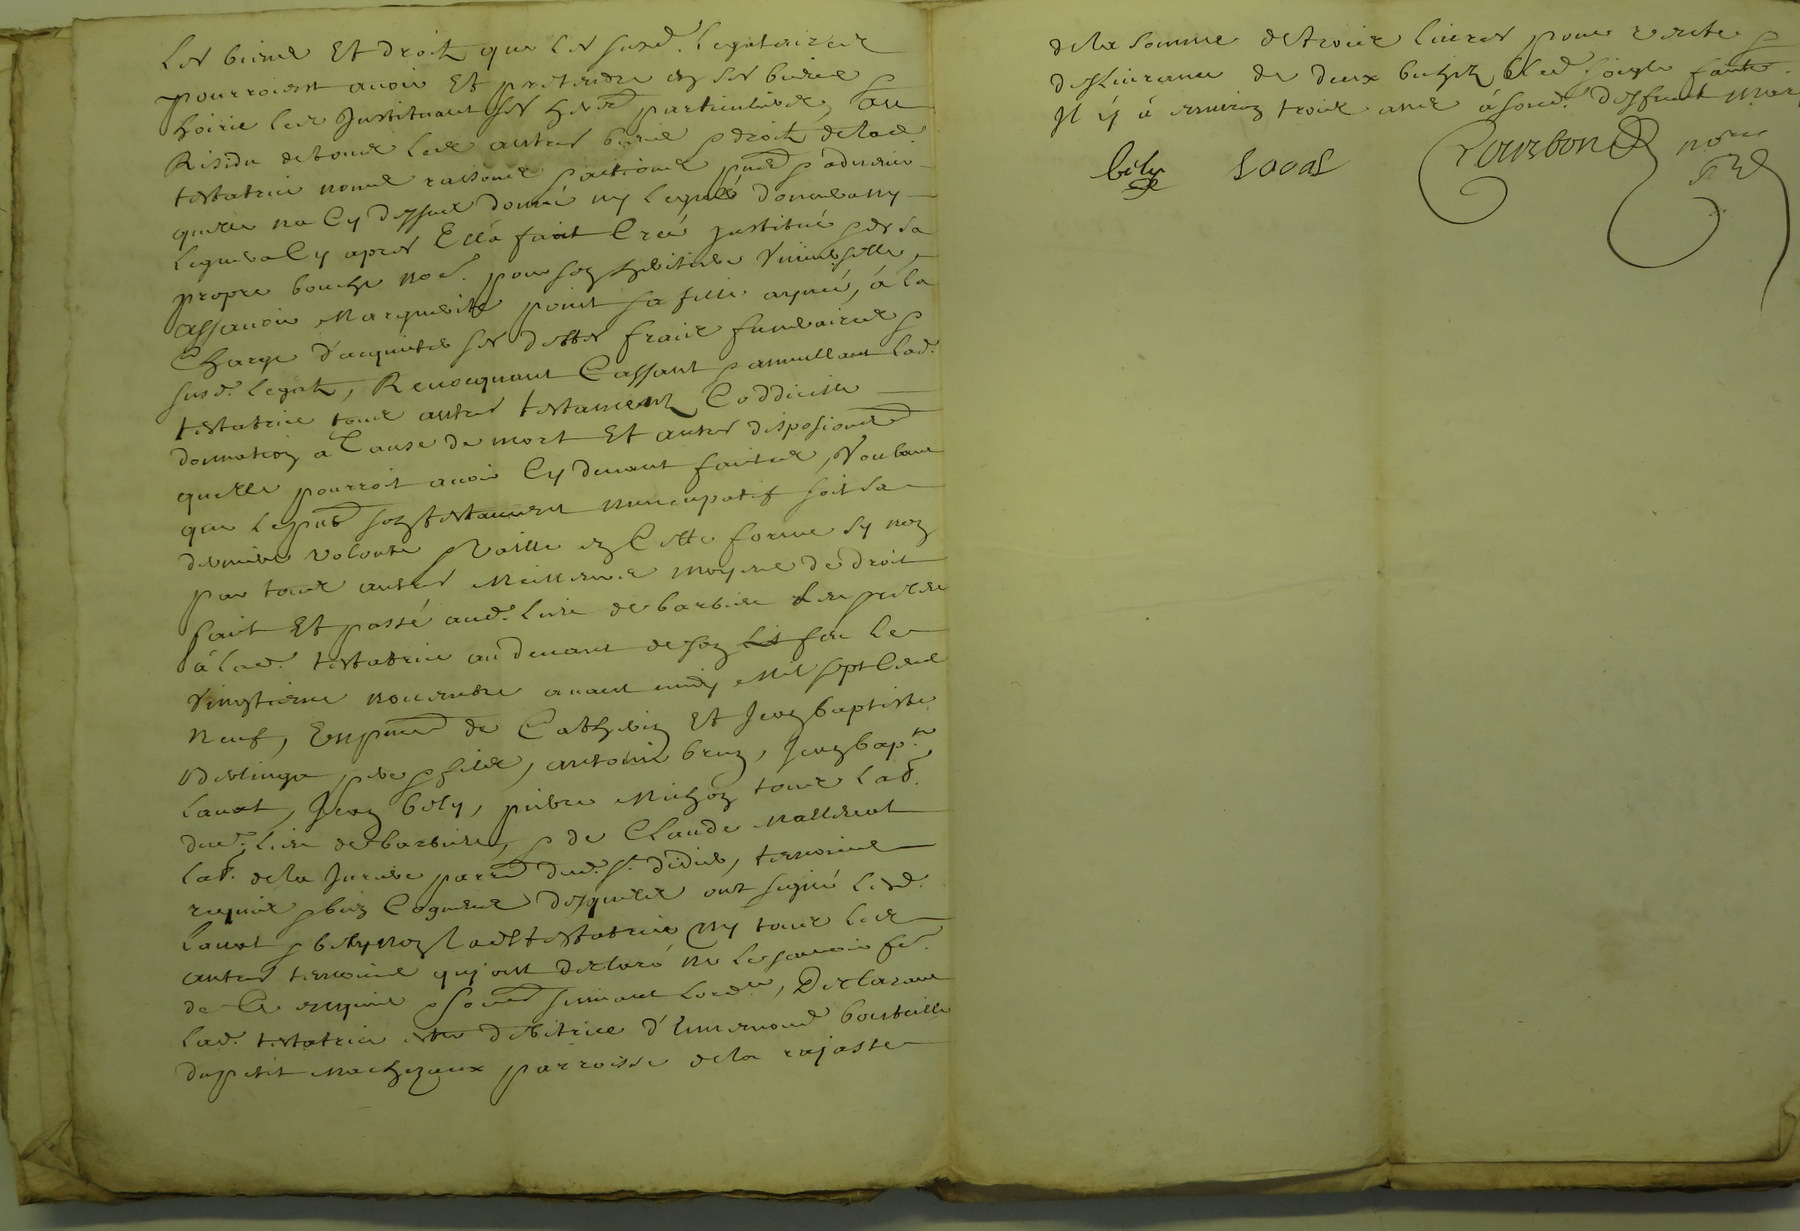 les biens Et droits que les susd. legataires
pourroient avoir Et pretendre en ses biens
hoirie les Instituant ses her particuliers, Au
Residu de tous les autres biens droits de lad
testatrice noms raisons actions
quelle na Cy dessus donné ny legué donnera ny
leguera Cy apres Ella fait Creé Institué de sa
propre bouche nô. pour son heritiere Universelle
assavoir Marguerite point sa fille aynée, à la
Charge d'acquiter ses dettes fraix funeraires
susd. legats, Revocquant Cassant annullant lad.
testatrice tous autres testaments Coddicille
donnation a Cause de mort Et autres disposions
quelle pourroit avoir Cy devant faites, Voulant
que le pnt son testament nuncupatif soit sa
derniere volonte Vaille en Cette forme sy non
par tous autres Meilleurs moyens de droit
fait Et passé aud. lieu de barbier
à lad. testatrice au devant de son lit feu le
Vingtieme novembre avant midy Mil sept Cent
Neuf, En pnce de Et Jean baptiste
pere fils, antoine brun, Jean bapt.
lavat, Jean bely, pierre Michon tous lad.
dud. lieu de barbier, de Claude
lab. de la parr dud. st. didier, temoins
requis bien Cogneus desquels ont signé lesd.
lavat bely non lad testatrice ny tous les
autres temoins qui ont declaré ne le savoir fe.
de Ce enquis suivant lord, Declarant
lad. testatrice estre debitrice d'
du petit parroisse de la rajasse
de la somme de trois livres pour reste
deslivrance de deux bichets bled soigle faite
Il y à environ trois ans à sond. deffunt mary
bely lavat Courbon nore